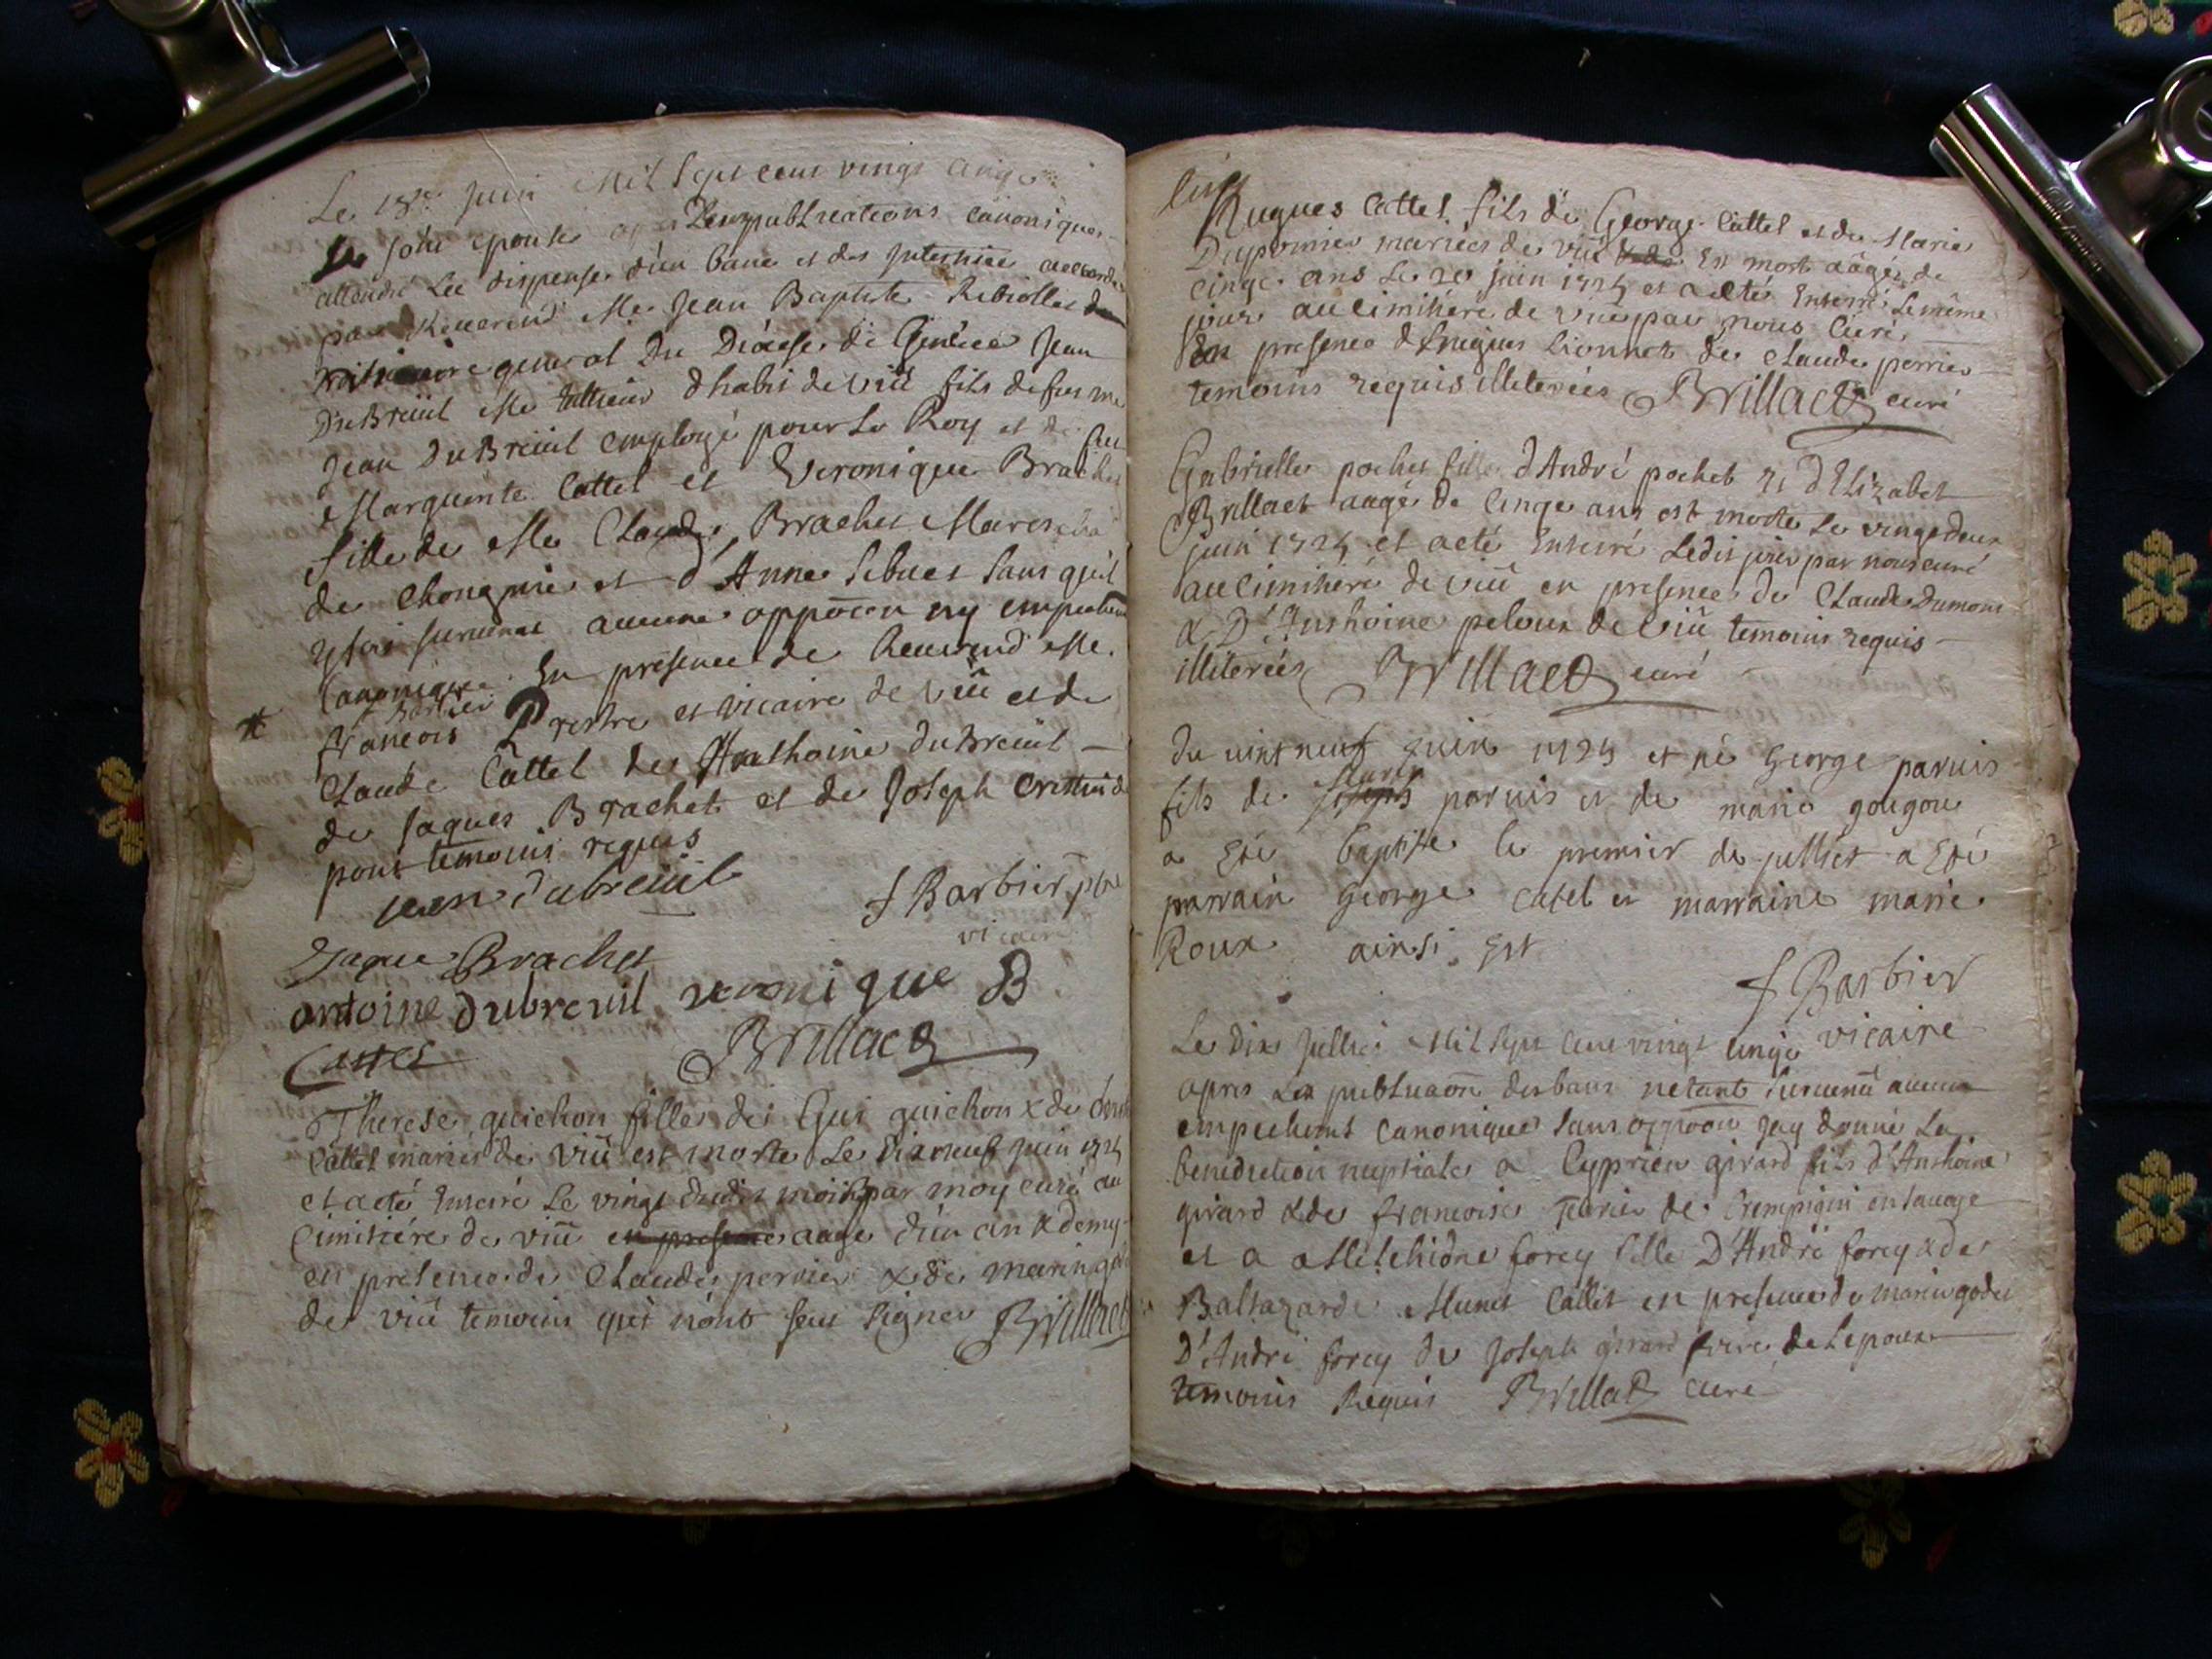 Le 18e juin Mil Sept cent vingt cinq
se sont epousés deux publications canoniques
attendu la dispense d'un banc et des
par Reverend Mre Jean Baptiste Ribiollet
general Du Diocese de Geneve Jean
DuBreüil Me d habis de viü fils de feu
Jean DuBreüil employé pour Le Roy et de feu
Marguerite Cattel et Veronique Brachet
fille de Me Claude Brachet
de et d'Anne sans qu'il
y soit survenu aucune oppoõn ny
Canonique. En presence de Reverend Mre
f Barbier
* françois Prestre et vicaire de viü et de
Claude Cattel de Anthoine DuBreüil
de Jaques Brachet et de Joseph
pour temoins requis
jean dubreüil
f Barbier ptre
vicaire
Jaque Brachet
antoine dubreuil veronique B
Cattel
Brillact
Therese guichon fille de Gui guichon & de
Cattel mariés de viü est morte Le dixneuf juin 1725
et a eté Enterré Le vingt dudit mois par moy curé au
Cimitiére de viü en presence aagé d'un an & demy
en presence de Claude perrier & de marin
de viü temoins qui n'ont sçu signer Brillact
Hugues Cattel fils de George Cattel et de Marie
mariés de viü Est mort aâgé de
cinqe ans Le 20 juin 1725 et a eté Enterré Le même
jour au cimitiére de viü par nous Curé
en presence d'Hugues Lionnet de Claude perrier
temoins requis illiterées Brillact curé
Gabrielle pochet fille d'André pochet et d'Elizabet
Brillact aagé de Cinqe ans est morte Le vingtdeux
juin 1725 et a eté Enterré Ledit jour par nous curé
au cimitiére de viü en presence de Claude Dumont
& D'Anthoine peloux de viü temoins requis
illiterées Brillact curé
du vint neuf juin 1725 et né George parvis
fils de parvis et de marie gougou
a Eté baptisé le premier de julliet a Eté
parrain George Catel et marraine marie
Roux ainsi Est
f Barbier
vicaire
Le dix Julliet Mil Sept Cent vingt cinqe
apres La publicaoñ des bans netant survenu aucun
empechemt canonique sans oppoõn jay donné La
benediction nuptiale a Cyprien girard fils d'Anthoine
girard & de françoise de Crempigni
et a Melchiône forey fille D'André forey & de
Baltazarde Munet en presence de marin godet
D'André forey de Joseph girard frere de Lepoux
temoins Requis Brillact curé